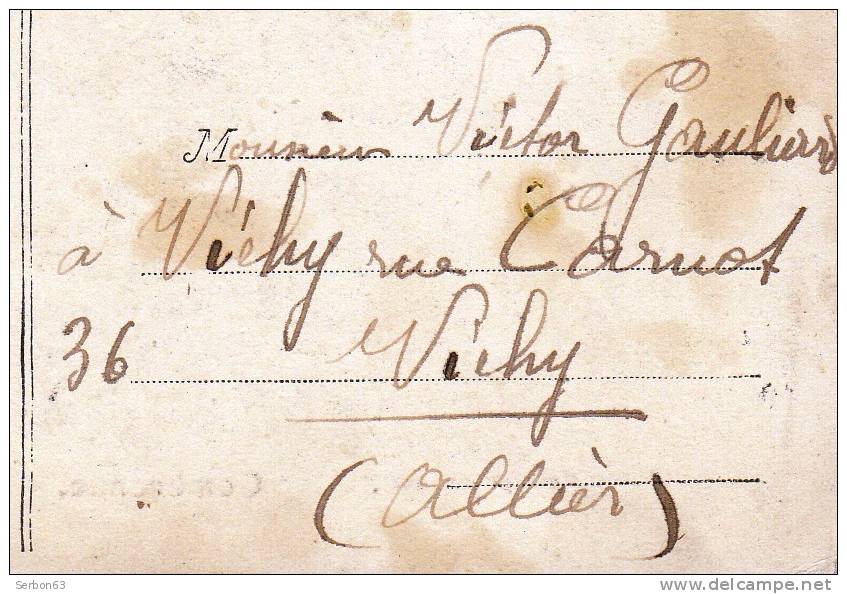 Monsieur Victor Gauliard
à Vichy rue Carnot
36 Vichy
(Allièr)
Serbon63
delcampe.net